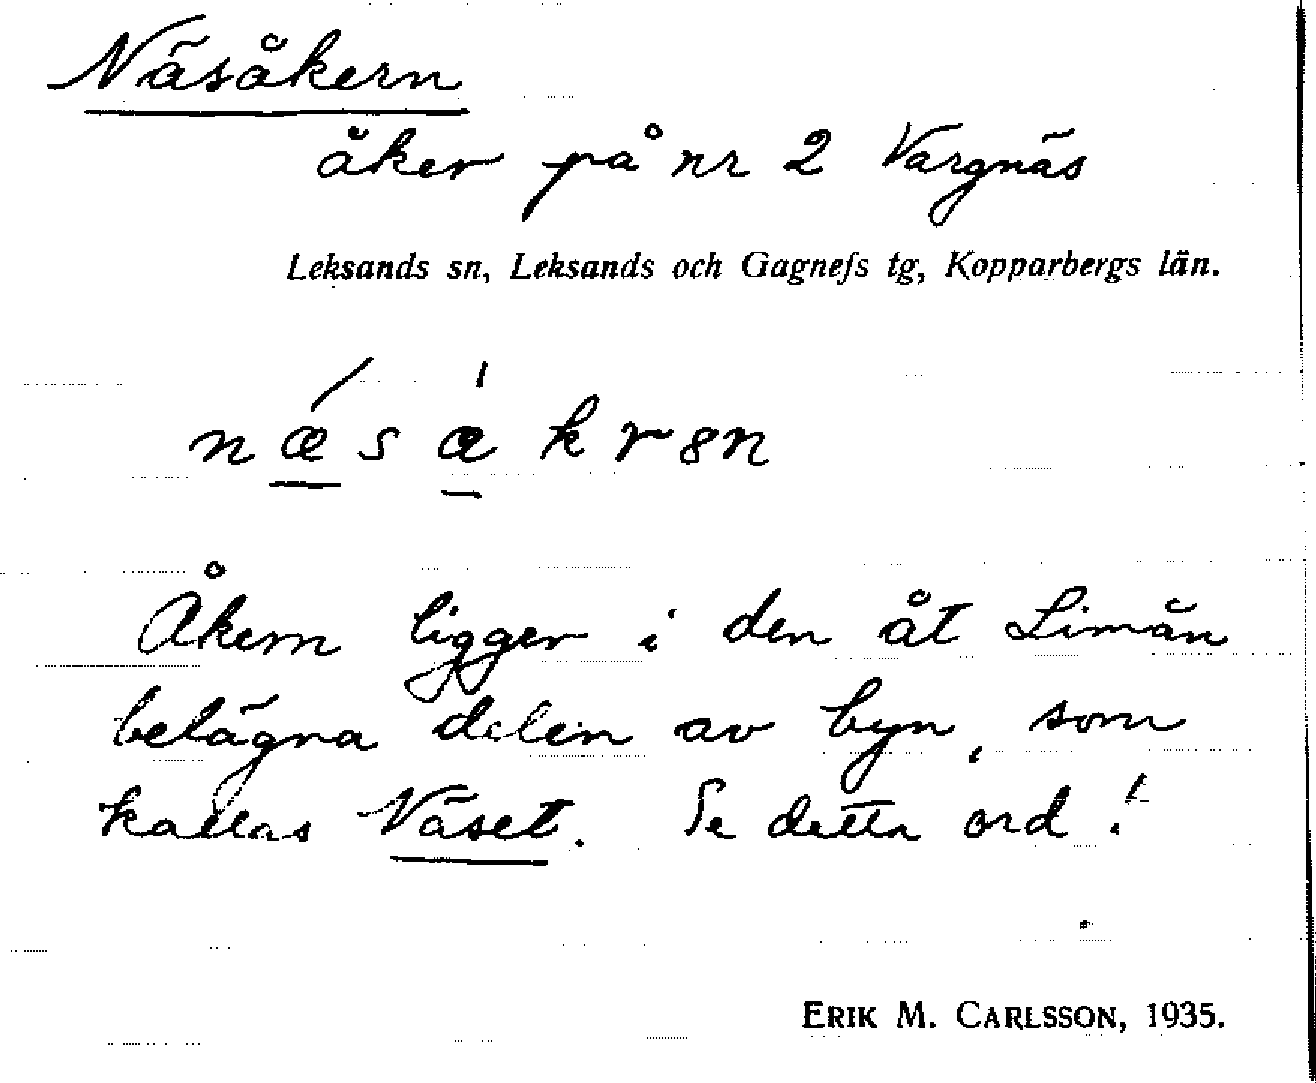 Näsåkern
åker på nr 2 Vargnäs
Leksands sn, Leksands och Gagnefs tg, Kopparbergs län.
Åkern ligger i den åt Limån
belägna delen av byn, som
kallas Näset. Se detta ord!
ERIK M. CARLSSON, 1935.